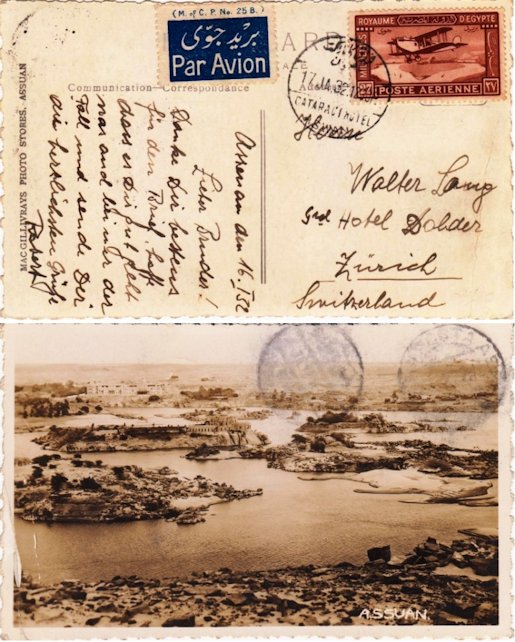 (M. of C. P. No. 25 B.)
بريد جوى
Par Avion
ROYAUME D'EGYPTE
27 MILLIEMES
POSTE AERIENNE ٢٧
17.JA.32
CATARACT HOTEL
Communication - Correspondance
MACGILLIVRAYS PHOTO STORES, ASSUAN
Assuan am 16 I 32
Lieber Bruder!
Danke Dir bestens
für den Brief, hoffe
dass es Dir gut geht
was auch bei mir der
Fall und sende Dir
die herzlichsten Grüße
Herrn
Walter Lang
Hotel Dolder
Zürich
Switzerland
ASSUAN.